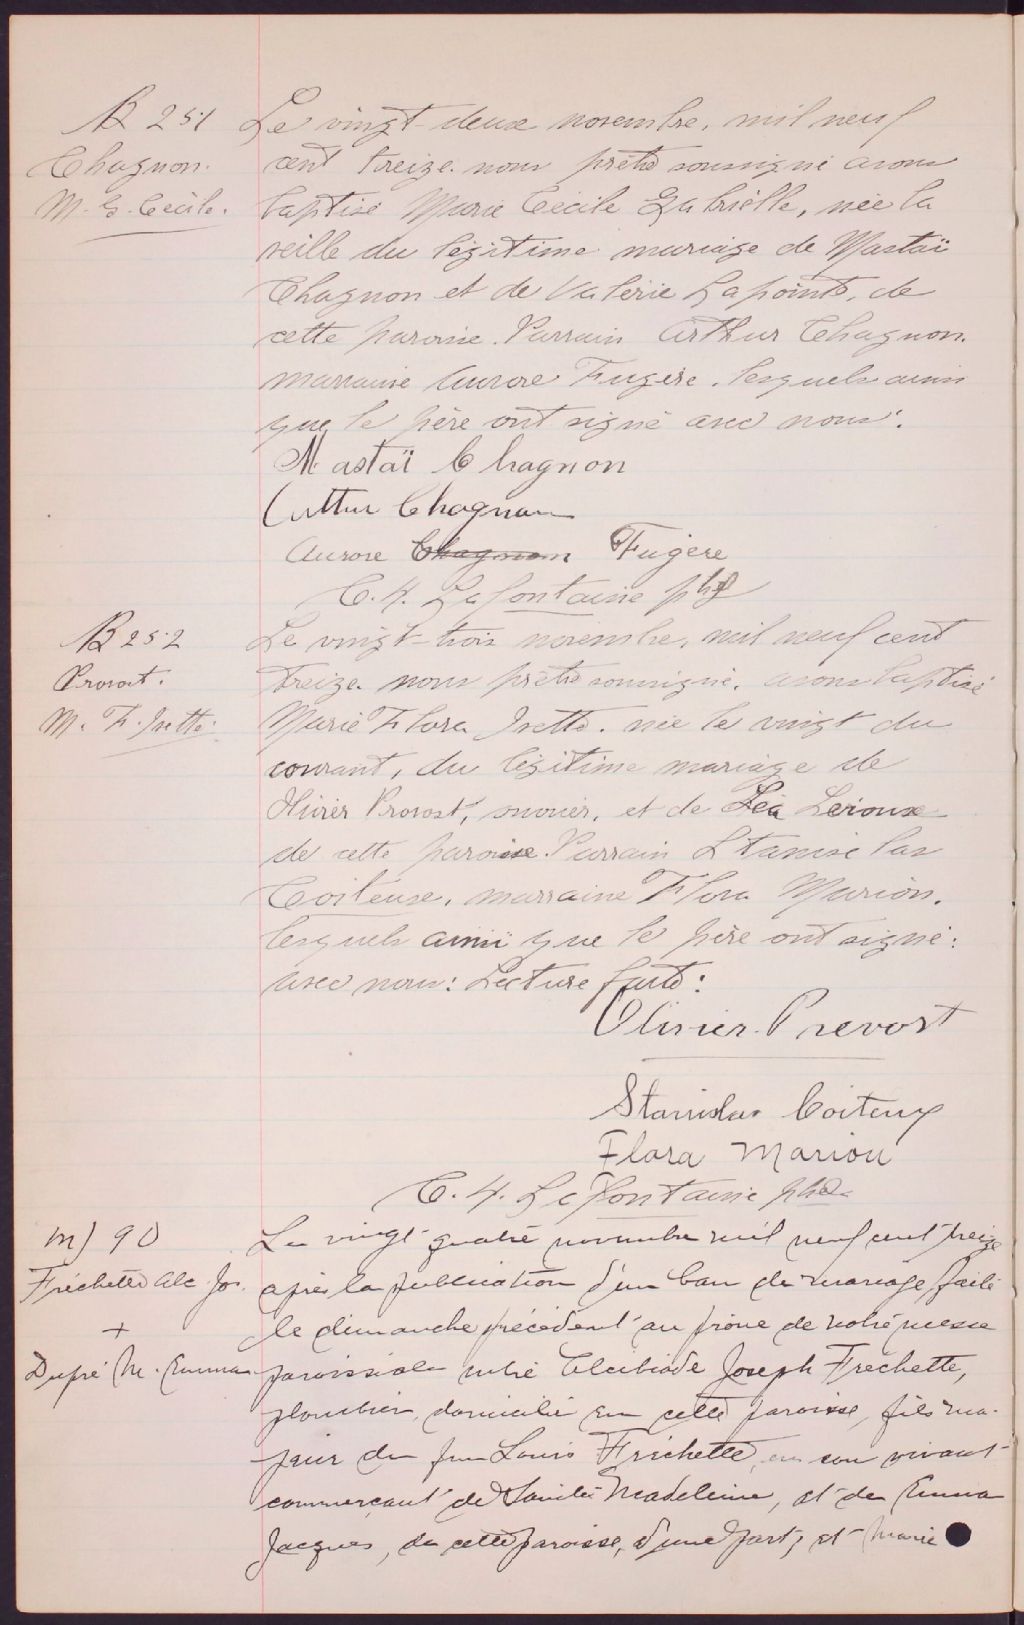 B 251
Chagnon.
M. G. Cécile.
Le vingt-deux novembre, mil neuf
cent treize. nous prêtre soussigné avons
baptisé Marie Cécile Gabrielle, née la
veille du légitime mariage de Mastaï
Chagnon et de Valérie Lapointe, de
cette paroisse. Parrain Arthur Chagnon.
marraine Aurore Fugère. lesquels ainsi
que le père ont signé avec nous.
Mastaï Chagnon
Arthur Chagnon
Aurore Chagnon Fugère
C. H. Lafontaine ptre
B 252
Provost.
M. F. Isette.
Le vingt-trois novembre, mil neuf cent
treize. nous prêtre soussigné. avons baptisé
Marie Flora Isette. née le vingt du
courant, du légitime mariage de
Olivier Provost, et de Léa Leroux
de cette paroisse. Parrain Stanislas
Coiteuse, marraine Flora Marion.
lesquels ainsi que le père ont signé.
avec nous: Lecture faite:
Olivier Prevost
Stanislas Coiteux
Flora Marion
C. H. Lafontaine ptre
M 90
Fréchette Alc. Jos.
+
Dupré M. Emma
Le vingt quatre novembre mil neuf cent treize
après la publication d'un ban de mariage faite
le dimanche précédent au prône de notre messe
paroissiale entre Alcibiade Joseph Frechette,
plombier, domicilié en cette paroisse, fils ma-
jeur de feu Louis Fréchette, en son vivant
commerçant de Sainte Madeleine, et de Emma
Jacques, de cette paroisse, d'une part; et Marie